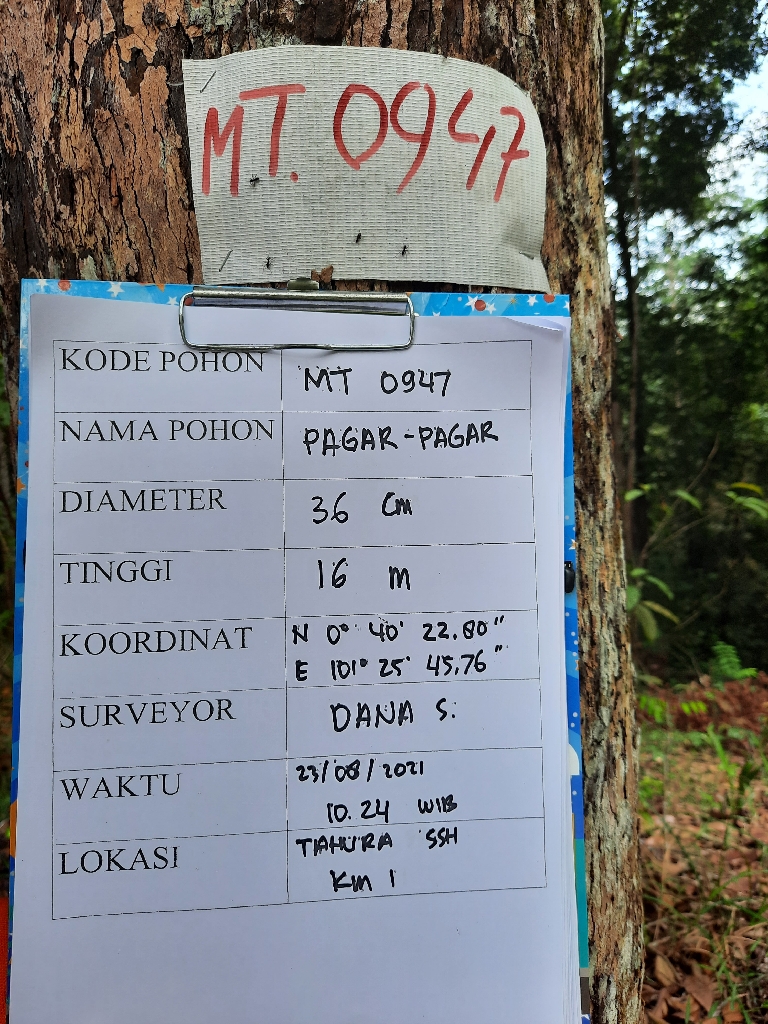 MT. 0947
KODE POHON MT 0947
NAMA POHON PAGAR-PAGAR
DIAMETER 36 Cm
TINGGI 16 m
KOORDINAT N 0° 40' 22.80"
E 101° 25' 45.76"
SURVEYOR DANA S.
WAKTU 23/08/2021
10.24 WIB
LOKASI TAHURA SSH
Km 1